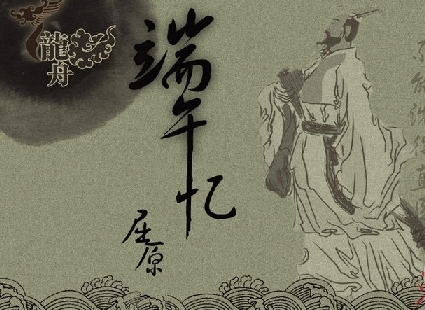 龍舟
端午忆
屈原